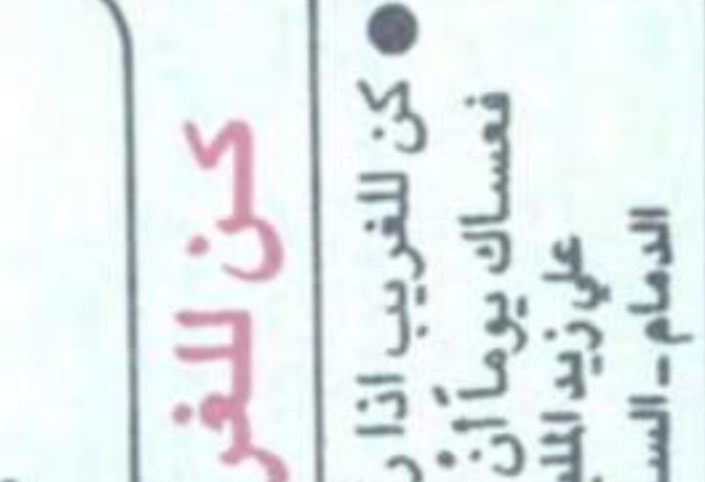 كن للغر
كن للغريب اذا ر
فعساك يوماً أن
علي زيد المل
الدمام - الس